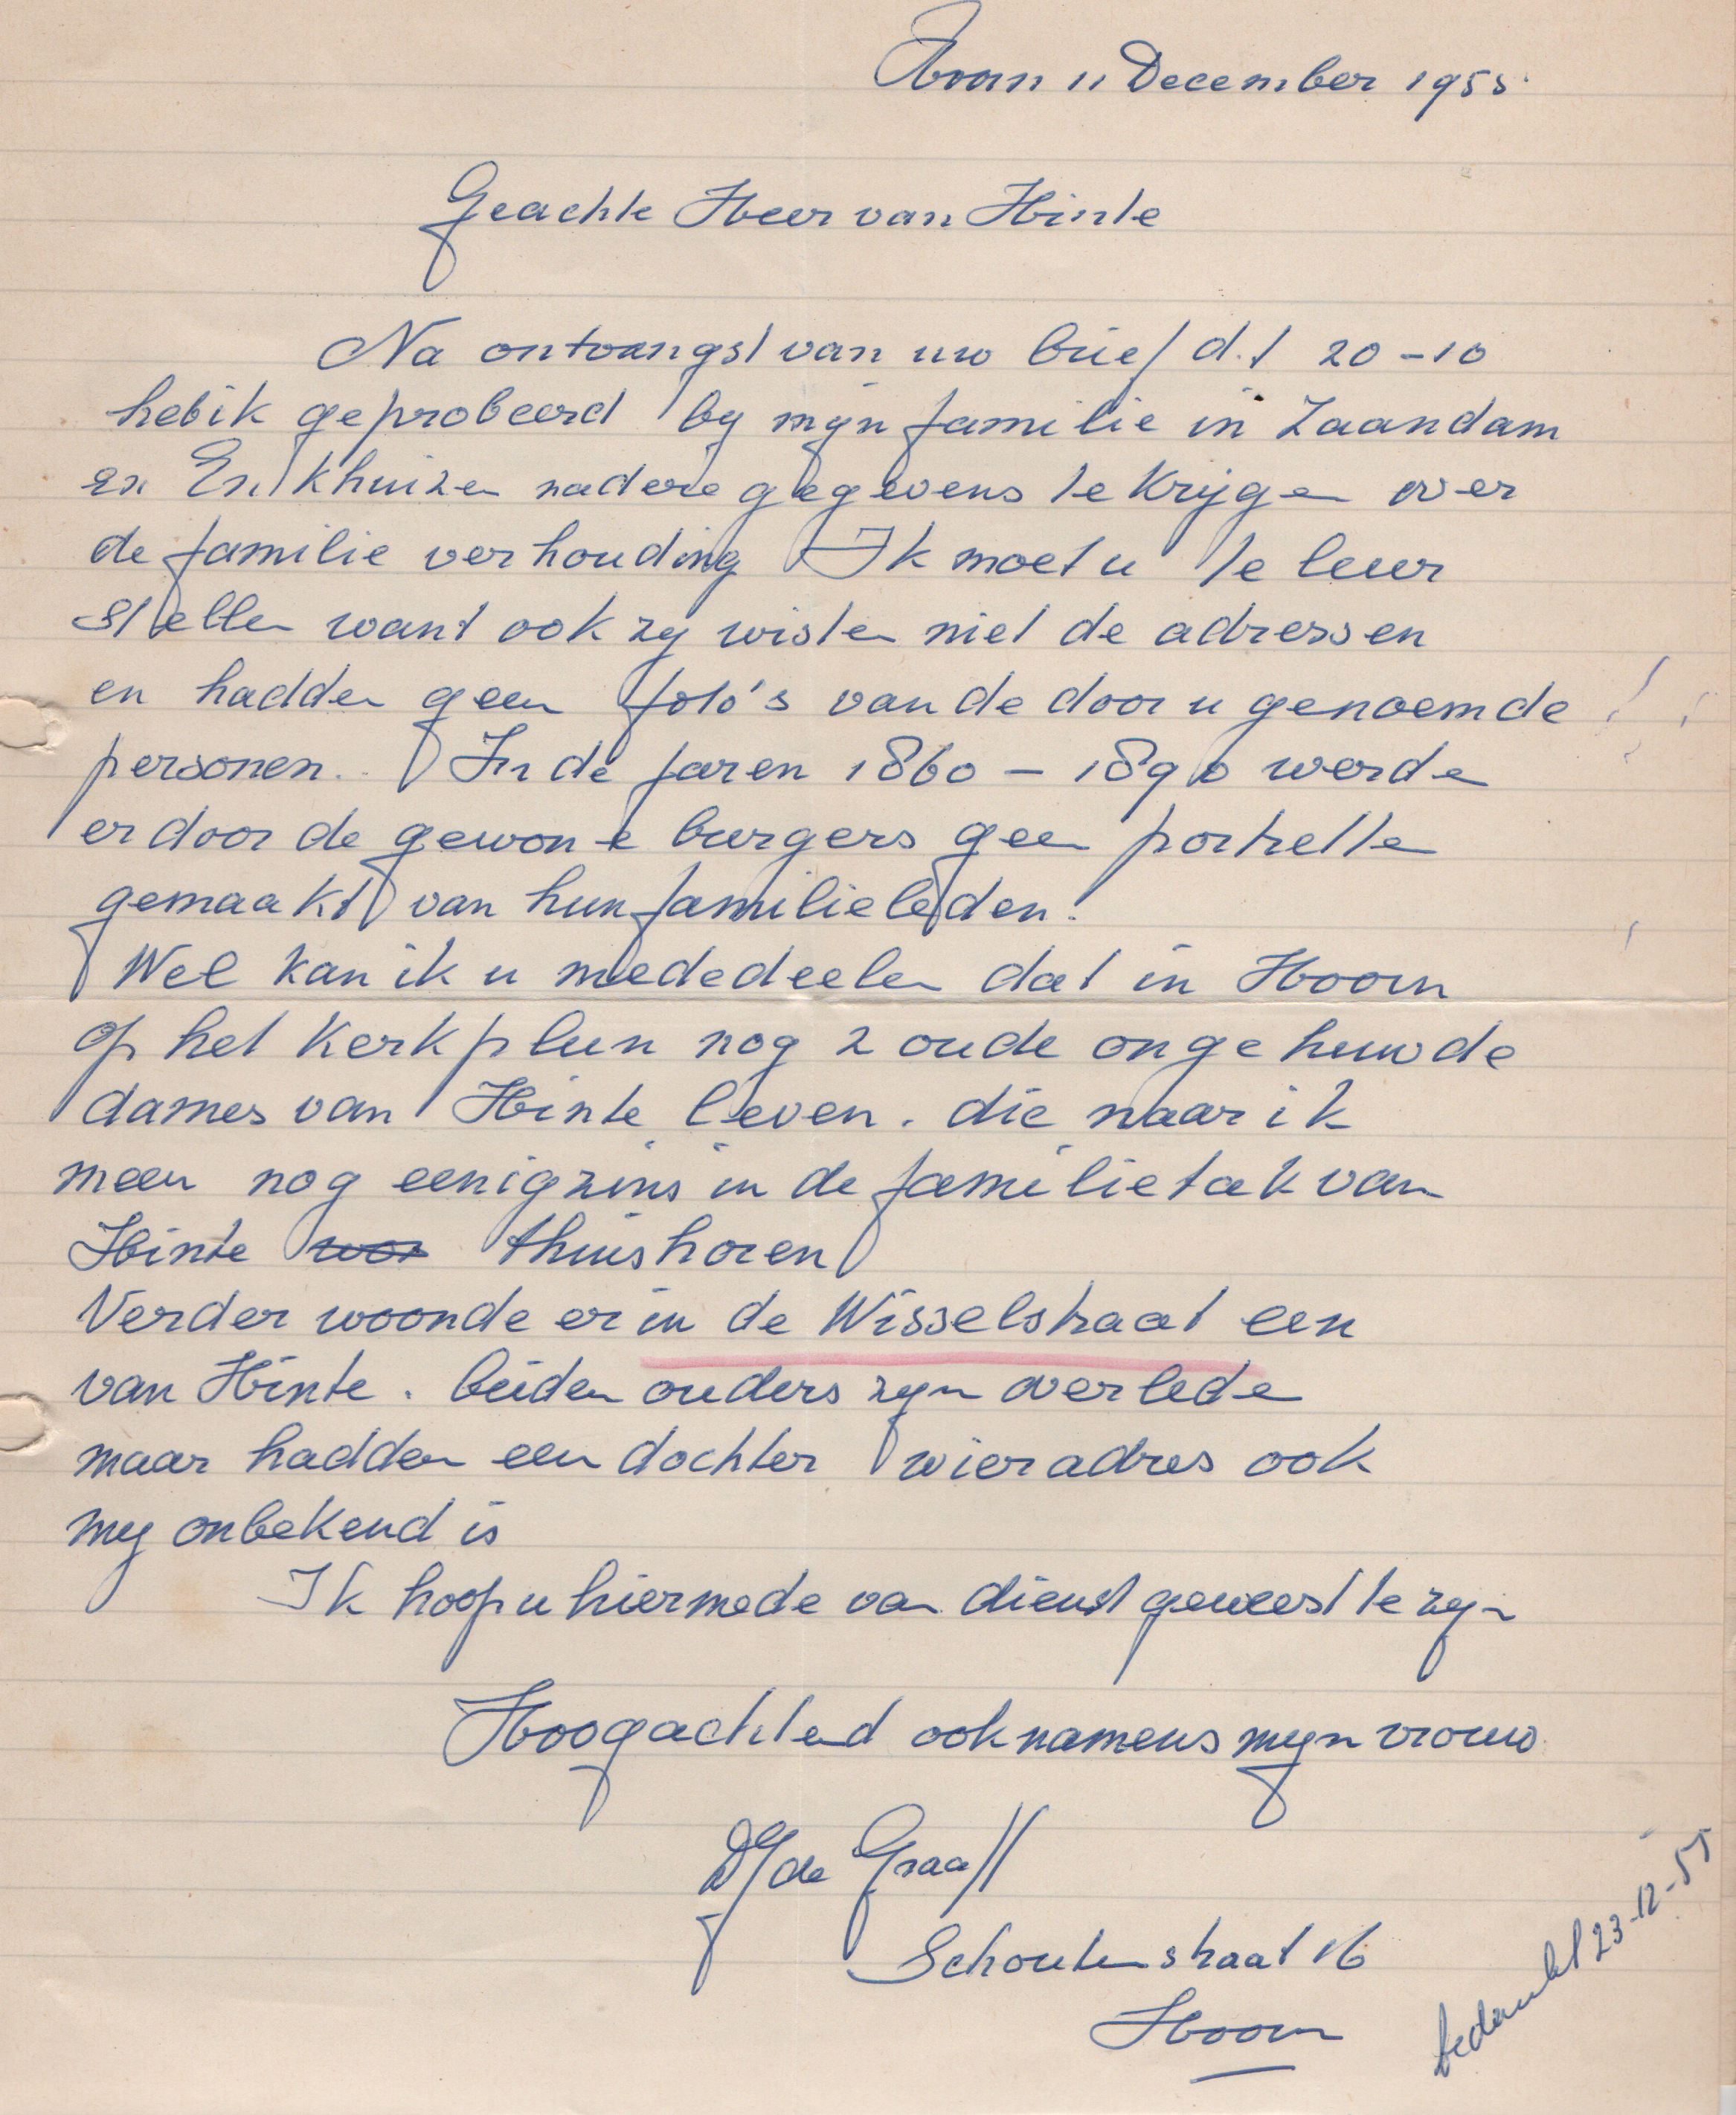 Hoorn 11 December 1955.
Geachte Heer van Hinte
Na ontvangst van uw brief d.t 20-10
heb ik geprobeerd by myn familie in Zaandam
en Enkhuizen nadere gegevens te krygen over
de familie verhouding Ik moet u te leur
stellen want ook zy wisten niet de adressen
en hadden geen foto's van de door u genoemde
personen. In de jaren 1860 - 1890 werden
er door de gewone burgers geen portretten
gemaakt van hun familieleden.
Wel kan ik u mededeelen dat in Hoorn
op het Kerkplein nog 2 oude ongehuwde
dames van Hinte leven. die naar ik
meen nog eenigzins in de familietak van
Hinte thuishoren
Verder woonde er in de Wisselstraat een
van Hinte. beiden ouders zyn overleden
maar hadden een dochter wier adres ook
my onbekend is
Ik hoop u hiermede van dienst geweest te zyn
Hoogachtend ook namens myn vrouw
DJ de Graaff
Schoutenstraat 16
Hoorn
bedankt 23-12-55